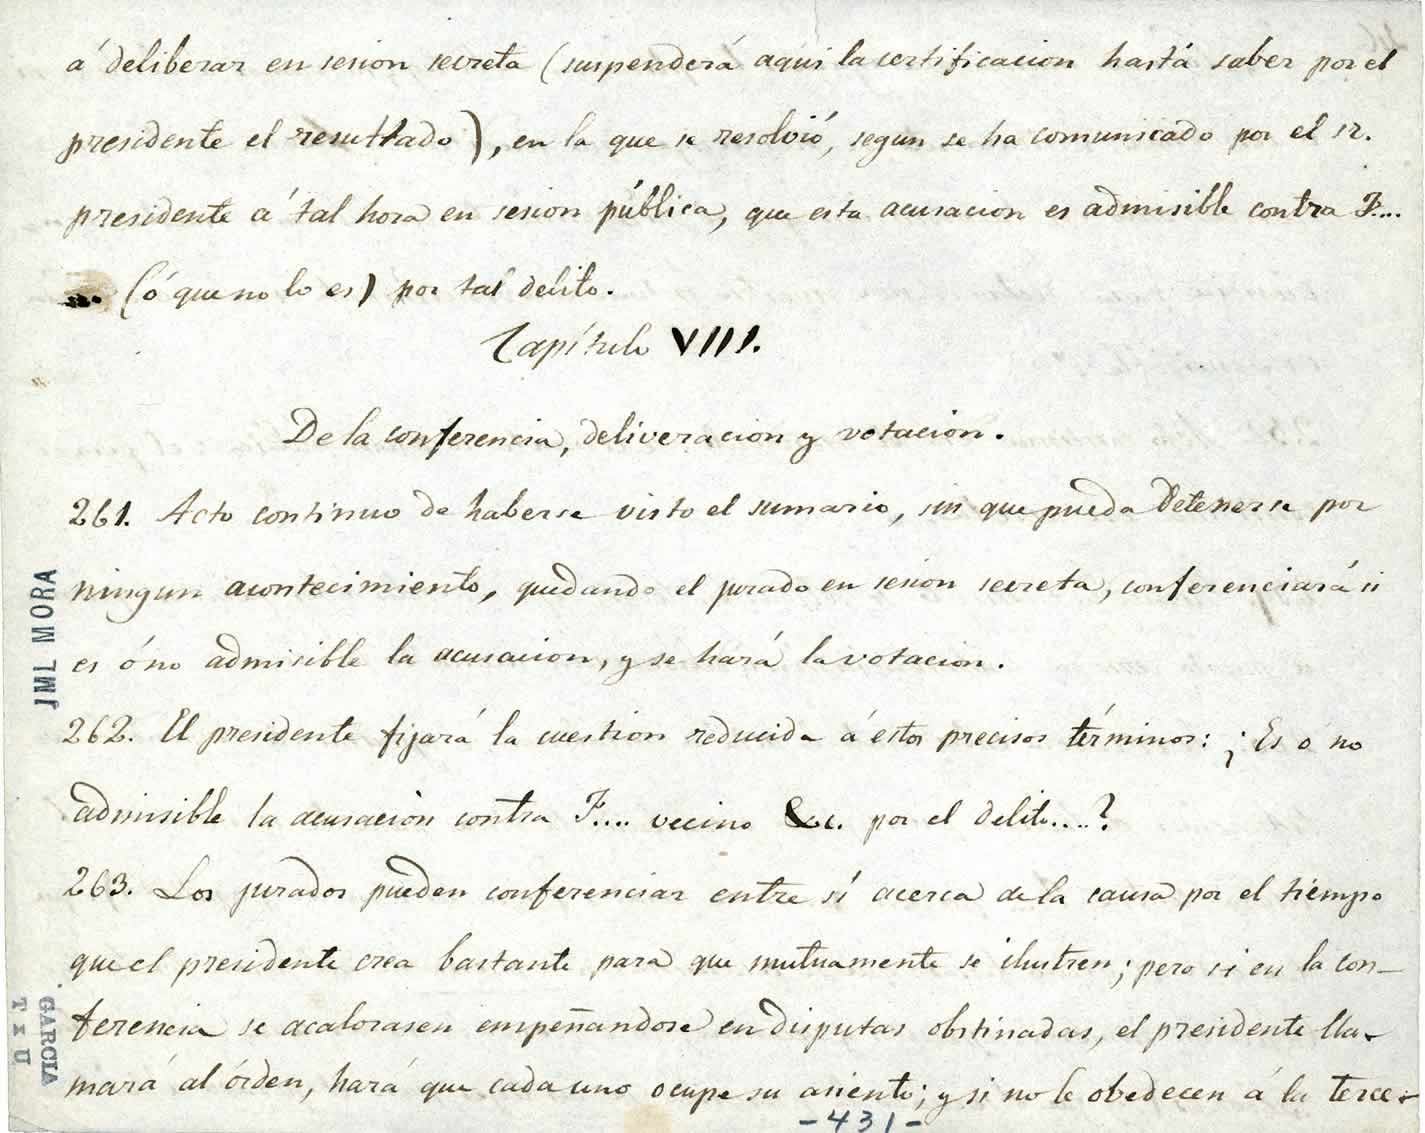 á deliberar en sesion secreta (suspenderá aqui la certificacion hastá saber por el
presidente el resultado), en la que se resolvió, segun se ha comunicado por el sr.
presidente á tal hora en sesion pública, que esta acusacion es admisible contra F....
(ó que no lo es) por tal delito.
Capítulo VIII.
De la conferencia, deliveracion y votacion.
261. Acto continuo de haberse visto el sumario, sin que pueda detenerse por
ningun acontecimiento, quedando el jurado en sesion secreta, conferenciará si
es ó no admisible la acusacion, y se hará la votacion.
262. El presidente fijará la cuestion reducida á estos precisos términos: ¿Es ó no
admisible la acusacion contra F.... vecino &c. por el delito....?
263. Los jurados pueden conferenciar entre sí acerca de la causa por el tiempo
que el presidente crea bastante para que mutuamente se ilustren; pero si en la con-
ferencia se acalorasen empeñandose en disputas obstinadas, el presidente lla-
mará al órden, hará que cada uno ocupe su asiento; y si no le obedecen á la terce-
-431-
JML MORA
GARCIA